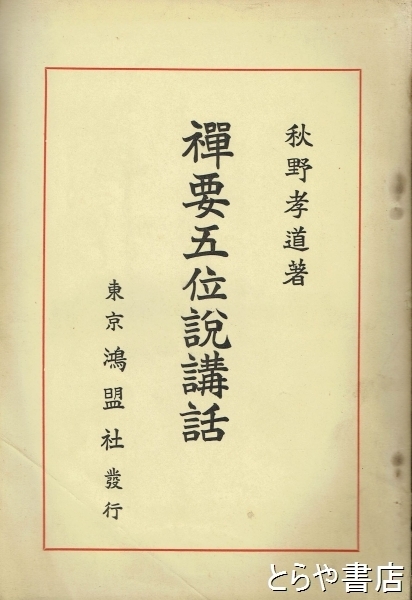 秋野孝道著
禪要五位說講話
東京 鴻盟社 發行
とらや書店